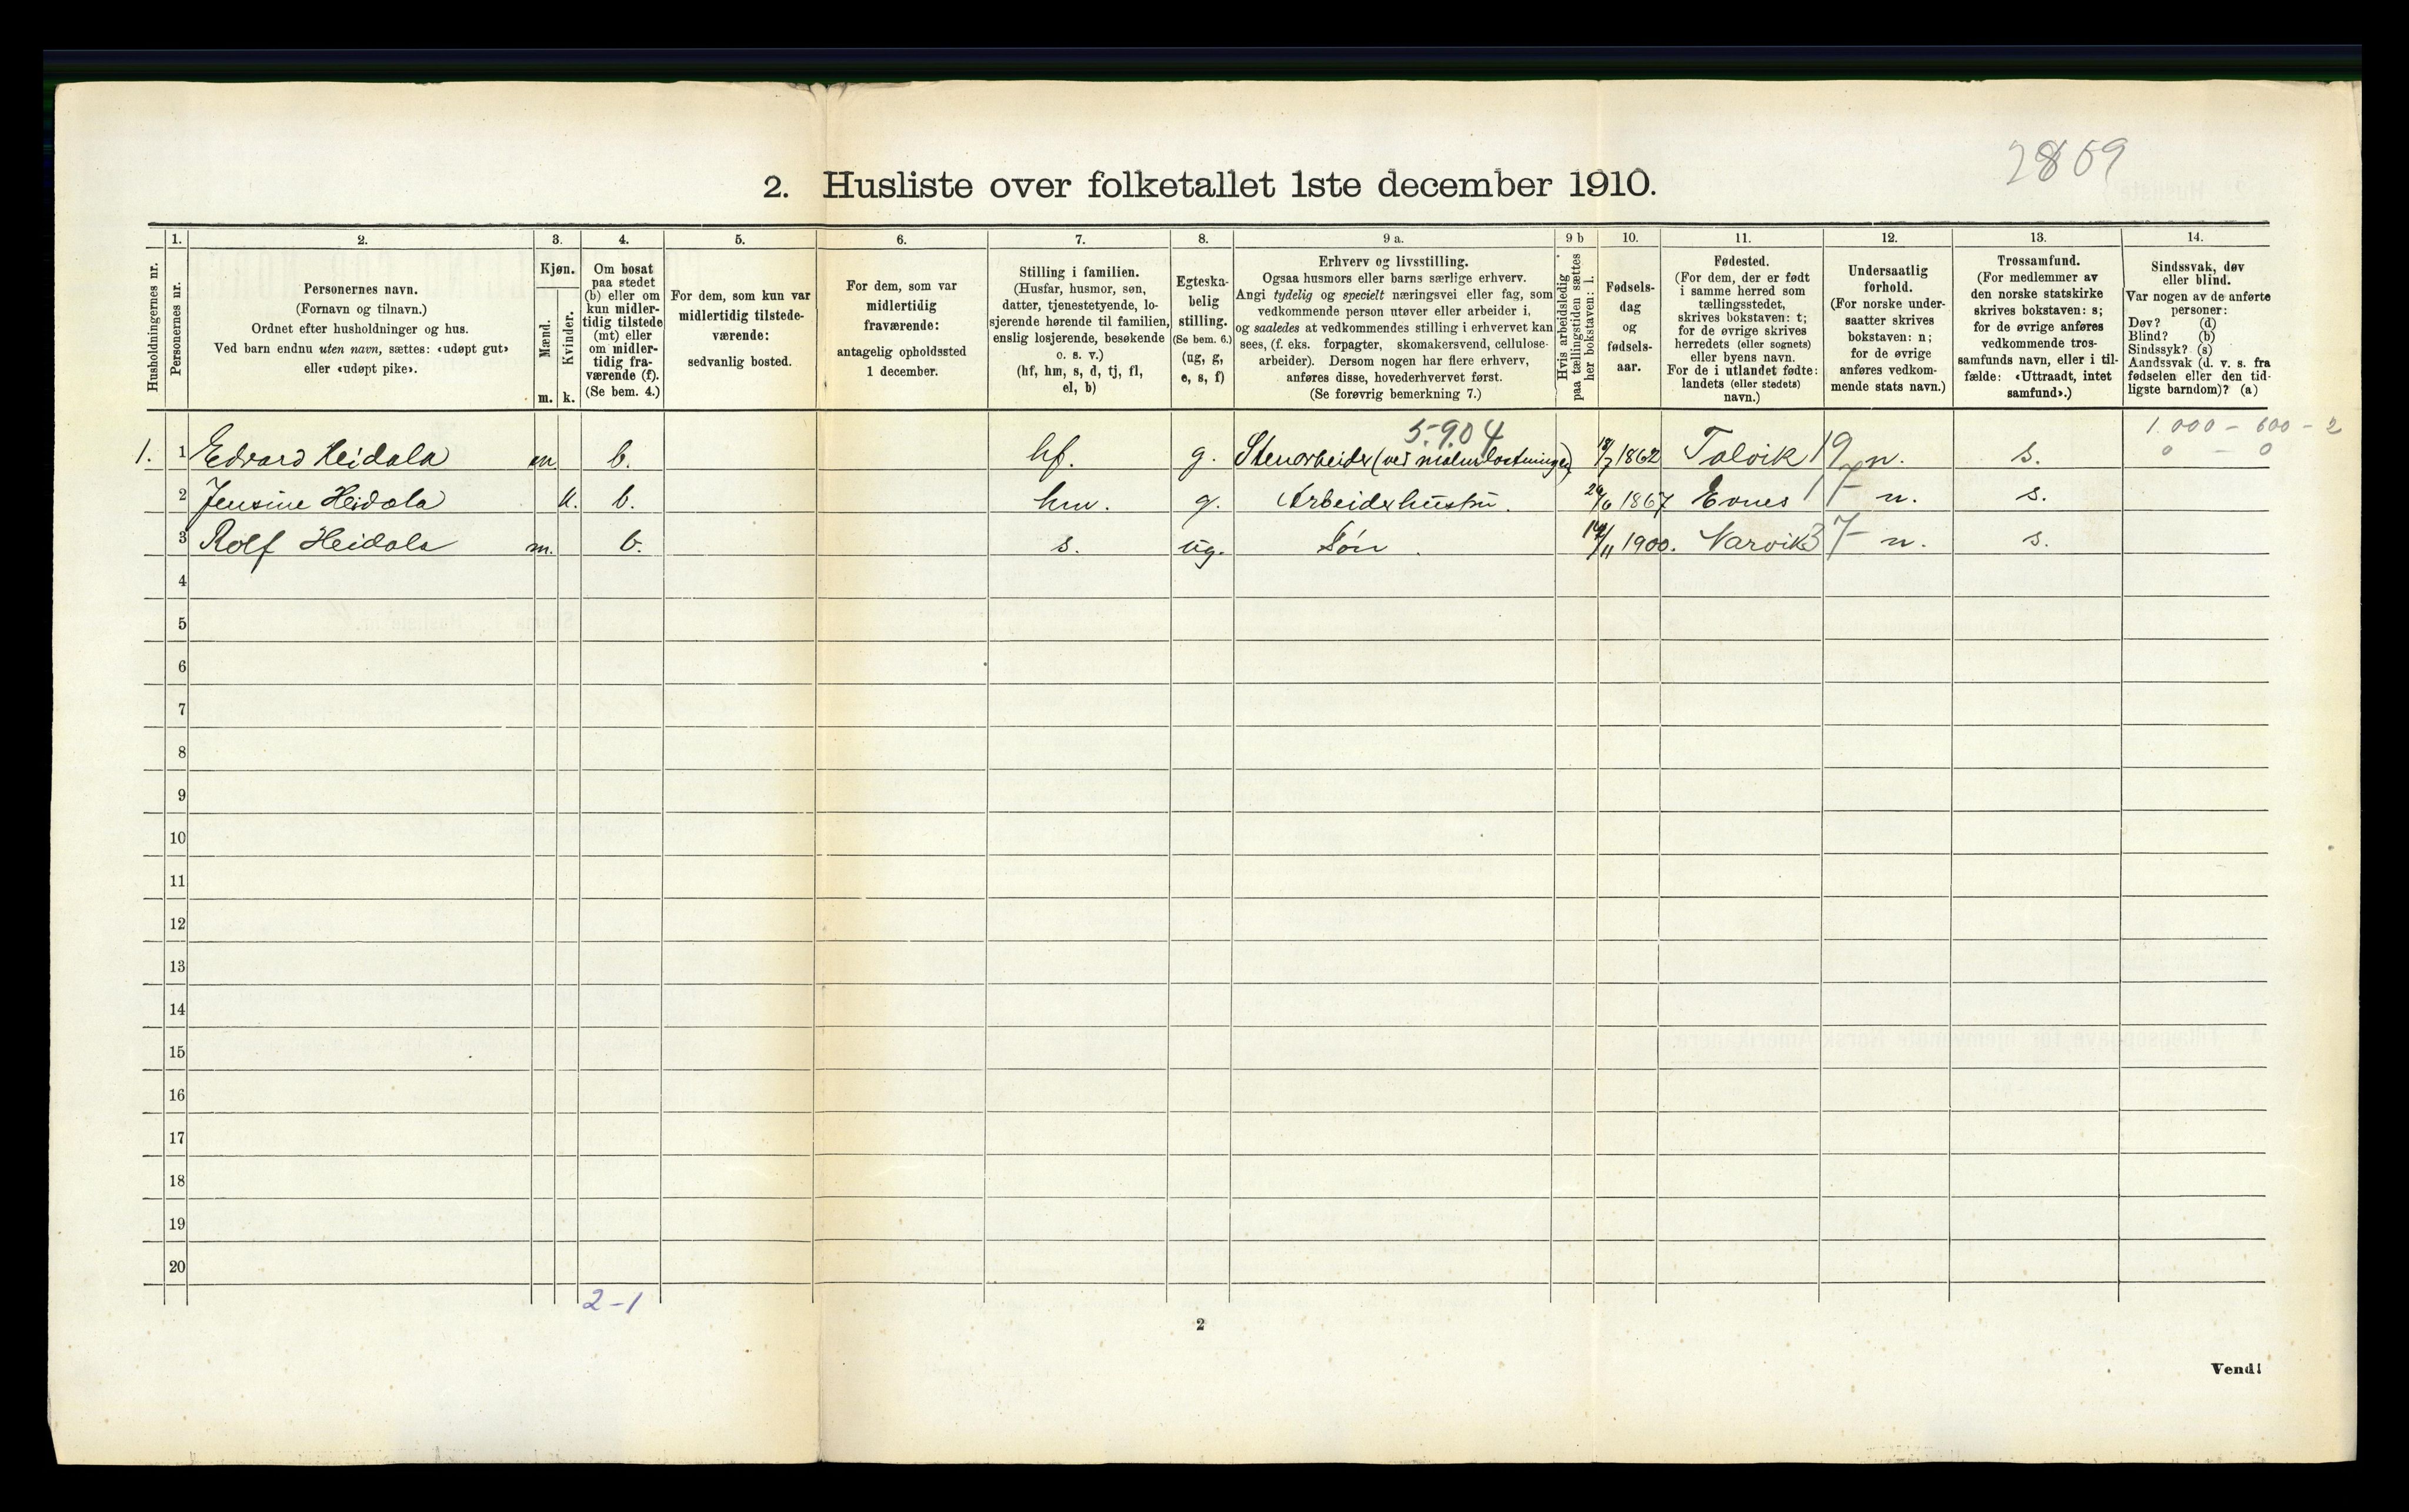 2869
2. Husliste over folketallet 1ste december 1910.
1. 2. 3. 4. 5. 6. 7. 8. 9 a. 9 b 10. 11. 12. 13. 14.
Husholdningernes nr.
Personernes nr.
Personernes navn.
(Fornavn og tilnavn.)
Ordnet efter husholdninger og hus.
Ved barn endnu uten navn, sættes: «udøpt gut»
eller «udøpt pike».
Kjøn.
Mænd.
Kvinder.
m. k.
Om bosat
paa stedet
(b) eller om
kun midler-
tidig tilstede
(mt) eller
om midler-
tidig fra-
værende (f).
(Se bem. 4.)
For dem, som kun var
midlertidig tilstede-
værende:
sedvanlig bosted.
For dem, som var
midlertidig
fraværende:
antagelig opholdssted
1 december.
Stilling i familien.
(Husfar, husmor, søn,
datter, tjenestetyende, lo-
sjerende hørende til familien,
enslig losjerende, besøkende
o. s. v.)
(hf, hm, s, d, tj, fl,
el, b)
Egteska-
belig
stilling.
(Se bem. 6.)
(ug, g,
e, s, f)
Erhverv og livsstilling.
Ogsaa husmors eller barns særlige erhverv.
Angi tydelig og specielt næringsvei eller fag, som
vedkommende person utøver eller arbeider i,
og saaledes at vedkommendes stilling i erhvervet kan
sees, (f. eks. forpagter, skomakersvend, cellulose-
arbeider). Dersom nogen har flere erhverv,
anføres disse, hovederhvervet først.
(Se forøvrig bemerkning 7.)
Hvis arbeidsledig
paa tællingstiden sættes
her bokstaven: l.
Fødsels-
dag
og
fødsels-
aar.
Fødested.
(For dem, der er født
i samme herred som
tællingsstedet,
skrives bokstaven: t;
for de øvrige skrives
herredets (eller sognets)
eller byens navn.
For de i utlandet fødte:
landets (eller stedets)
navn.)
Undersaatlig
forhold.
(For norske under-
saatter skrives
bokstaven: n;
for de øvrige
anføres vedkom-
mende stats navn.)
Trossamfund.
(For medlemmer av
den norske statskirke
skrives bokstaven: s;
for de øvrige anføres
vedkommende tros-
samfunds navn, eller i til-
fælde: «Uttraadt, intet
samfund».)
Sindssvak, døv
eller blind.
Var nogen av de anførte
personer:
Døv? (d)
Blind? (b)
Sindssyk? (s)
Aandssvak (d. v. s. fra
fødselen eller den tid-
ligste barndom)? (a)
5.904 1.000 - 600 - 2
0 - 0
1. 1 Edvard Heidala m b. hf. g. Stenarbeider (ved 18/7 1862 Talvik 19 n. s.
2 Jensine Heidala k. b. hm. g. Arbeiderhustru. 1867 Evnes 17 n. s.
3 Rolf Heidala m. b. s. ug. Søn. 14/11 1900. Narvik 37 n. s.
4
5
6
7
8
9
10
11
12
13
14
15
16
17
18
19
20
2-1
2
Vend!